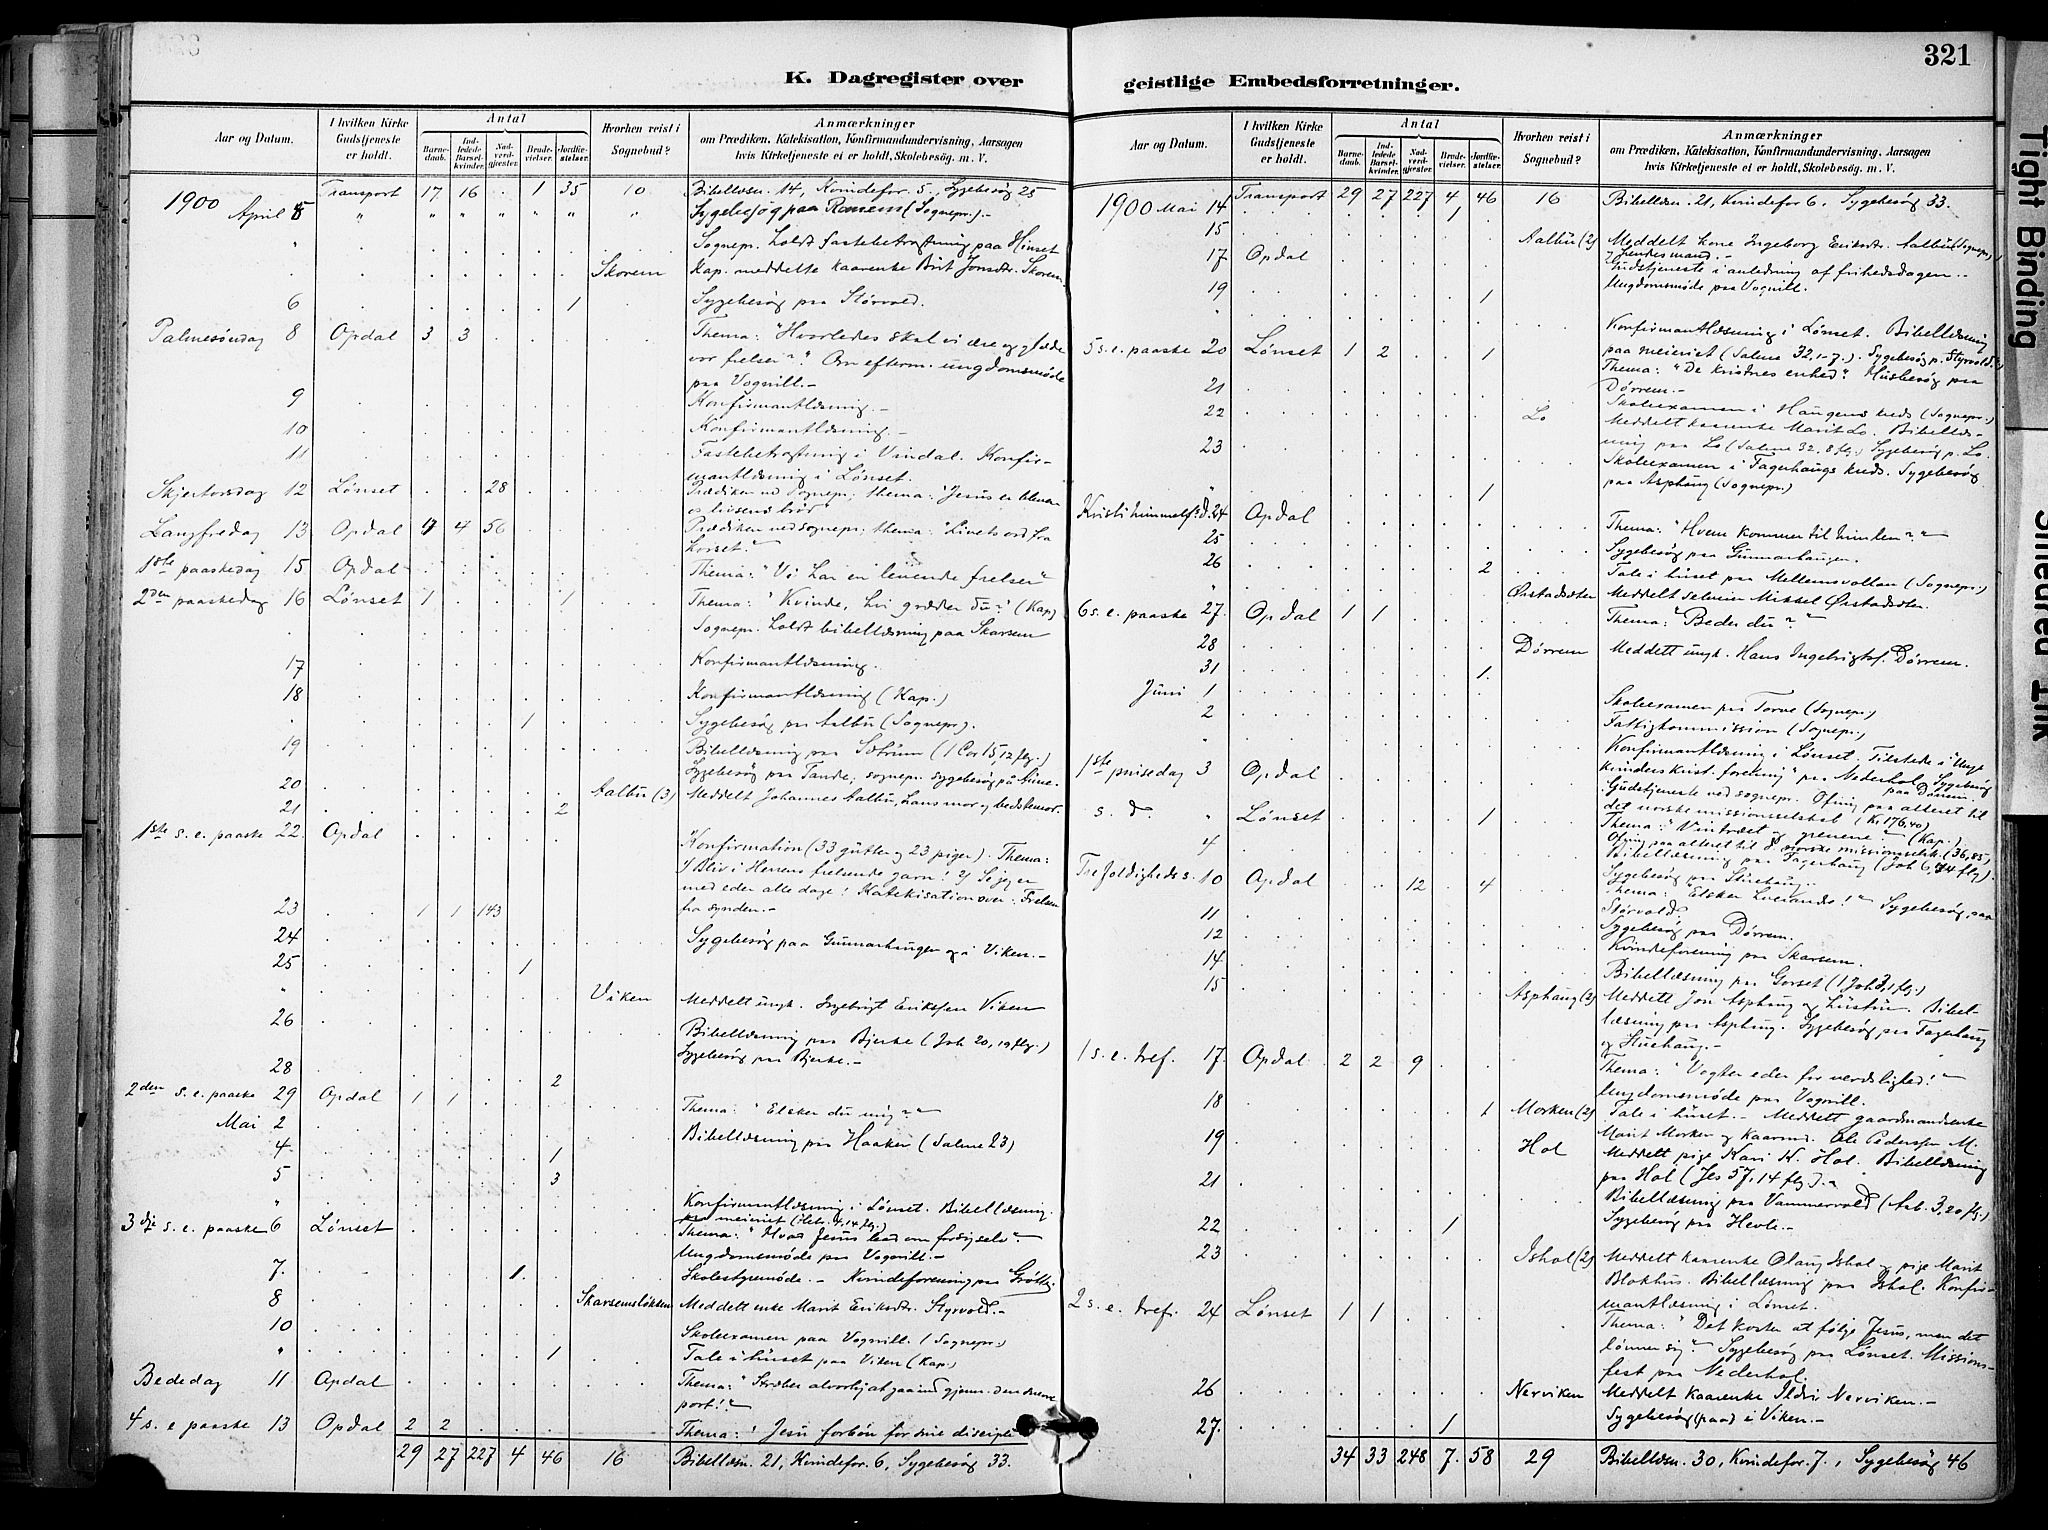 321
K. Dagregister over geistlige Embedsforretninger.
Aar og Datum. I hvilken Kirke Gudstjeneste er holdt. Antal Barnedaab. Indledede Barselkvinder. Nadverdgjester. Brudevielser. Jordfæstelser. Hvorhen reist i Sognebud? Anmærkninger om Prædiken, Katekisation, Konfirmandundervisning, Aarsagen hvis Kirketjeneste ei er holdt, Skolebesøg. m. V.
1900 Transport 17 16 . 1 35 10 Bibellæsn. 14, Kvindefor. 5, Sygebesøg 25
April 5 " " " " " " " Sygebesøg paa (Sognepr.) -
" Sognepr. holdt fastebetragtning paa Hinset
" Skorem Kap. meddelte kaarenke Brit Jonsdtr. Skorem
6 1 Sygebesøg paa Størvold.
Palmesøndag 8 Opdal 3 3 Thema: "Hvorledes skal vi ære og glæde
vor frelser?" Om efterm. ungdomsmøde
paa Vognill. -
9 Konfirmantlæsning. -
10 Konfirmantlæsning. -
11 Fastebetragtning i Vindal. Konfir-
mantlæsning i Lønset.
Skjertorsdag 12 Lønset . . 28 Prædiken ved Sognepr; thema: "Jesus er
og livsens brød"
Langfredag 13 Opdal 4 4 56 Prædiken ved sognepr; thema: "Livets ord fra
korset."
1ste paaskedag 15 Opdal Thema: "Vi har en levende frelser"
2den paaskedag 16 Lønset 1 . . . 1 Thema: "Kvinde, hvi græder du?" (Kap)
Sognepr. holdt bibellæsning paa Skarsem
17 Konfirmantlæsning.
18 Konfirmantlæsning (Kap.)
. 1 Sygebesøg paa Aalbu (Sognepr).
19 Bibellæsning paa Sætrum (1 Cor 15, 12 flg.)
20 Sygebesøg paa Tande; sognepr. sygebesøg på
21 2 Aalbu (3) Meddelt Johannes Aalbu, hans mor og bedstemor.
1ste s. e. paaske 22 Opdal Konfirmation (33 gutter og 23 piger). Thema:
1/ Bliv i Herrens frelsende garn! 2/ Se jeg er
med eder alle dage! Katekisation over: Frelsen
23 1 1 143 fra synden. -
24 Sygebesøg paa Gunnarhaugen og i Viken. -
25 1
" Viken Meddelt ungk. Ingebrigt Eriksen Viken
26 Bibellæsning paa Bjerke (Joh 20, 19 flg.)
Sygebesøg paa Bjerke. -
28 2
2den s. e. paaske 29 Opdal 1 1 Thema: "Elsker du mig?"
Mai 2 Bibellæsning paa Haaker (Salme 23)
4 1
5 3
" Konfirmantlæsning i Lønset. Bibellæsning
paa meieriet (Hebr. 4, 14 flg.)
3dje s. e. paaske 6 Lønset Thema: "Hvad Jesus lærd om fordig selv".
Ungdomsmøde paa Vognill. -
7. 1. Skolestyremøde. - Kvindeforening paa
8 Skarsemsløkken Meddelt enke Marit Eriksdtr. Styrvold. -
10 Skoleexamen paa Vognill. (Sognepr.)
" 1 Tale i huset paa Viken (Kap.)
Bededag 11 Opdal Thema: "Stræber alvorlig at gaa ind gjenn. den snevre
port!"
4 s. e paaske 13 Opdal 2 2 Thema: "Jesu forbøn for sine disciple
29 27 227 4 46 16 Bibellæsn. 21, Kvindefor. 6, Sygebesøg 33.
Aar og Datum. I hvilken Kirke Gudstjeneste er holdt. Antal Barnedaab. Indledede Barselkvinder. Nadverdgjester. Brudevielser. Jordfæstelser. Hvorhen reist i Sognebud? Anmærkninger om Prædiken, Katekisation, Konfirmandundervisning, Aarsagen hvis Kirketjeneste ei er holdt, Skolebesøg. m. V.
1900 Mai 14 Transport 29 27 227 4 46 16 Bibellæsn. 21, Kvindefor 6, Sygebesøg 33.
1
15 Aalbu (2) Meddelt kone Ingeborg Eriksdtr. Aalbu (Sognepr.)
og hendes mand. -
17 Opdal Gudstjeneste i anledning af frihedsdagen. -
19 1 Ungdomsmøde paa Vognill.
" Konfirmantlæsning i Lønset. Bibellæsning
paa meieriet (Salme 32, 1-7.). Sygebesøg p. Styrvold.
5 s. e. paaske 20 Lønset 1 2 . . 1 Thema: "De kristnes enhed". Husbesøg paa
Dørrem. -
21 Skoleexamen i Haugens kreds (Sognepr.)
22 Lo Meddelt kaarenke Marit Lo. Bibellæs-
ning paa Lo (Salme 32, 8 flg.) Sygebesøg p. Lo.
23 Skoleexamen i Fagerhaugs kreds. Sygebesøg
" 1 paa Asphaug (Sognepr.)
Kristi himmelf. d. 24 Opdal Thema: "Hvem kommer til himlen?"
25 Sygebesøg paa Gunnarhaugen.
26 2 Tale i huset paa Mellemsvollan (Sognepr.)
" Ørstadsæter Meddelt selveier Mikkel Ørstadsæter.
6 s. e. paaske 27. Opdal 1 1 Thema: "Beder du?"
28 Dørrem Meddelt ungk. Hans Ingebrigts. Dørrem.
31 1.
Juni 1 Skoleexamen paa Torve (Sognepr.)
2 Fattigkommission (Sognepr.)
" Konfirmantlæsning i Lønset. Tilstede i "Unge
kvinders krist. forening" paa Nederhol. Sygebesøg
paa Dørrem.
1ste pinsedag 3 Opdal Gudstjeneste ved sognepr. Ofring paa alteret til
det norske missionsselskab (Kr 176,40)
s. d. " Lønset 1 Thema: "Vintræet og grenene" (Kap.)
Ofring paa alteret til d. norske missionsselsk. (36,85)
4 Bibellæsning paa Fagerhaug (Joh 6, 44 flg).
Sygebesøg paa
Trefoldigheds s. 10 Opdal . . 12 . 4 Thema: "Elsker hverandre!" Sygebesøg paa
Størvold.
11 Sygebesøg paa Dørrem.
12 Kvindeforening paa Skarsem.
14 Bibellæsning paa Gorset (1 Joh 2, 1 flg.)
15 Asphaug (2) Meddelt Jon Asphaug og hustru. Bibel-
læsning paa Asphaug. Sygebesøg paa Fagerhaug
og Huehaug. -
1 s. e. tref. 17. Opdal 2 2 9 Thema: "Vogter eder for verdslighed!"
Ungdomsmøde paa Vognill.
18 1 Morken (2) Tale i huset. - Meddelt gaardmandenke
Marit Morken og kaarmd. Ole Pedersen M.
19 Hol Meddelt pige Kari K. Hol. Bibellæsning
paa Hol (Jes 57, 14 flg). -
21 Bibellæsning paa Vammervold (Aab. 3, 20 flg.)
22 1 Sygebesøg paa Hevle. -
23 Ishol (2) Meddelt kaarenke Olaug Ishol og pige Marit
Blokhus. Bibellæsning paa Ishol. Konfir-
mantlæsning i Lønset.
2 s. e. tref. 24 Lønset 1 1 Thema: "Det koster at følge Jesus, men det
lønner sig". Sygebesøg paa Lønset. Missions-
fest paa Nederhol.
26 Nerviken Meddelt kaarenke Ildri Nerviken. -
27. 1 Sygebesøg (paa) i Viken. -
34 33 248 7. 58 29 Bibellæsn. 30, Kvindefor. 7., Sygebesøg 46
Tight Binding